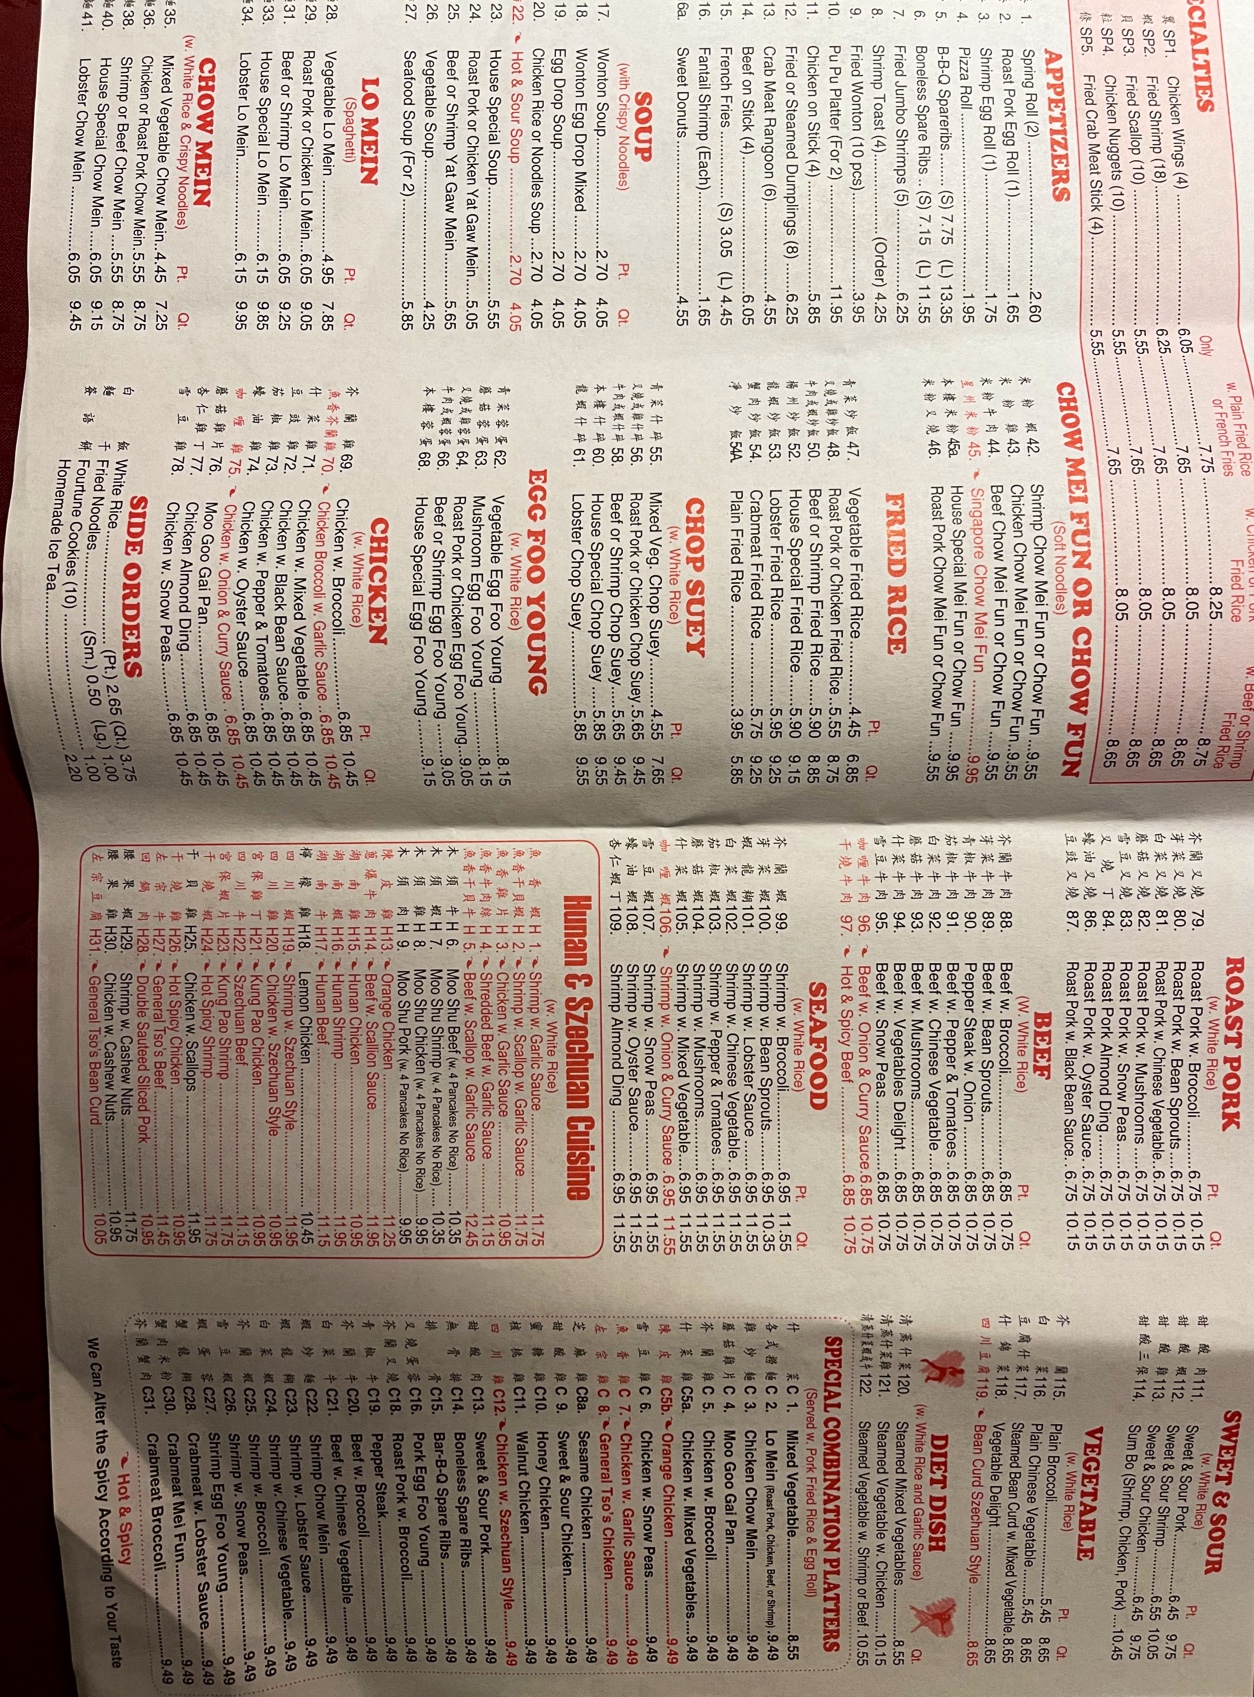 ECIALTIES
Only
w. Plain Fried Rice
or French Fries
Fried Rice
w. Beef or Shrimp
Fried Rice
SP1. Chicken Wings (4) 6.05 7.75 8.25 8.75
SP2. Fried Shrimp (18) 6.25 7.65 8.05 8.65
SP3. Fried Scallop (10) 5.55 7.65 8.05 8.65
SP4. Chicken Nuggets (10) 5.55 7.65 8.05 8.65
SP5. Fried Crab Meat Stick (4) 5.55 7.65 8.05 8.65
APPETIZERS
1. Spring Roll (2) 2.60
2. Roast Pork Egg Roll (1) 1.65
3. Shrimp Egg Roll (1) 1.75
4. Pizza Roll 1.95
5. B-B-Q Spareribs (S) 7.75 (L) 13.35
6. Boneless Spare Ribs (S) 7.15 (L) 11.55
7. Fried Jumbo Shrimps (5) 6.25
8. Shrimp Toast (4) (Order) 4.25
9. Fried Wonton (10 pcs) 3.95
10. Pu Pu Platter (For 2) 11.95
11. Chicken on Stick (4) 5.85
12. Fried or Steamed Dumplings (8) 6.25
13. Crab Meat Rangoon (6) 4.55
14. Beef on Stick (4) 6.05
15. French Fries (S) 3.05 (L) 4.45
16. Fantail Shrimp (Each) 1.65
6a. Sweet Donuts 4.55
SOUP
(with Crispy Noodles) Pt. Qt.
17. Wonton Soup 2.70 4.05
18. Wonton Egg Drop Mixed 2.70 4.05
19. Egg Drop Soup 2.70 4.05
20. Chicken Rice or Noodles Soup 2.70 4.05
22. Hot & Sour Soup 2.70 4.05
23. House Special Soup 5.55
24. Roast Pork or Chicken Yat Gaw Mein 5.05
25. Beef or Shrimp Yat Gaw Mein 5.65
26. Vegetable Soup 4.25
27. Seafood Soup (For 2) 5.85
LO MEIN
(Spaghetti) Pt. Qt.
28. Vegetable Lo Mein 4.95 7.85
29. Roast Pork or Chicken Lo Mein 6.05 9.05
31. Beef or Shrimp Lo Mein 6.05 9.25
33. House Special Lo Mein 6.15 9.85
34. Lobster Lo Mein 6.15 9.95
CHOW MEIN
(w. White Rice & Crispy Noodles) Pt. Qt.
35. Mixed Vegetable Chow Mein 4.45 7.25
36. Chicken or Roast Pork Chow Mein 5.55 8.75
38. Shrimp or Beef Chow Mein 5.55 8.75
40. House Special Chow Mein 6.05 9.15
41. Lobster Chow Mein 6.05 9.45
CHOW MEI FUN OR CHOW FUN
(Soft Noodles)
米粉蝦 42. Shrimp Chow Mei Fun or Chow Fun 9.55
米粉雞 43. Chicken Chow Mei Fun or Chow Fun 9.55
米粉牛肉 44. Beef Chow Mei Fun or Chow Fun 9.55
星州米粉 45. Singapore Chow Mei Fun 9.95
本樓米粉 45a. House Special Mei Fun or Chow Fun 9.95
米粉叉燒 46. Roast Pork Chow Mei Fun or Chow Fun 9.55
FRIED RICE
Pt. Qt.
青菜炒飯 47. Vegetable Fried Rice 4.45 6.85
叉燒或雞炒飯 48. Roast Pork or Chicken Fried Rice 5.55 8.75
牛肉或蝦炒飯 50. Beef or Shrimp Fried Rice 5.90 8.85
楊州炒飯 52. House Special Fried Rice 5.90 9.15
龍蝦炒飯 53. Lobster Fried Rice 5.95 9.25
蟹肉炒飯 54. Crabmeat Fried Rice 5.75 9.25
淨炒飯 54A. Plain Fried Rice 3.95 5.85
CHOP SUEY
(w. White Rice) Pt. Qt.
青菜什碎 55. Mixed Veg. Chop Suey 4.55 7.65
叉燒或雞什碎 56. Roast Pork or Chicken Chop Suey 5.65 9.45
牛肉或蝦什碎 58. Beef or Shrimp Chop Suey 5.65 9.45
本樓什碎 60. House Special Chop Suey 5.85 9.55
龍蝦什碎 61. Lobster Chop Suey 5.85 9.55
EGG FOO YOUNG
(w. White Rice)
青菜蓉蛋 62. Vegetable Egg Foo Young 8.15
蘑菇蓉蛋 63. Mushroom Egg Foo Young 8.15
叉燒或雞蓉蛋 64. Roast Pork or Chicken Egg Foo Young 9.05
牛肉或蝦蓉蛋 66. Beef or Shrimp Egg Foo Young 9.05
本樓蓉蛋 68. House Special Egg Foo Young 9.15
CHICKEN
(w. White Rice) Pt. Qt.
芥蘭雞 69. Chicken w. Broccoli 6.85 10.45
魚香芥蘭雞 70. Chicken Broccoli w. Garlic Sauce 6.85 10.45
什菜雞 71. Chicken w. Mixed Vegetable 6.85 10.45
豆豉雞 72. Chicken w. Black Bean Sauce 6.85 10.45
茄椒雞 73. Chicken w. Pepper & Tomatoes 6.85 10.45
蠔油雞 74. Chicken w. Oyster Sauce 6.85 10.45
咖喱雞 75. Chicken w. Onion & Curry Sauce 6.85 10.45
蘑菇雞片 76. Moo Goo Gai Pan 6.85 10.45
杏仁雞丁 77. Chicken Almond Ding 6.85 10.45
雪豆雞 78. Chicken w. Snow Peas 6.85 10.45
SIDE ORDERS
白飯 White Rice (Pt.) 2.65 (Qt.) 3.75
麵干 Fried Noodles (Sm.) 0.50 (Lg.) 1.00
簽語餅 Fourtune Cookies (10) 1.00
Homemade Ice Tea 2.20
ROAST PORK
(w. White Rice) Pt. Qt.
芥蘭叉燒 79. Roast Pork w. Broccoli 6.75 10.15
芽菜叉燒 80. Roast Pork w. Bean Sprouts 6.75 10.15
白菜叉燒 81. Roast Pork w. Chinese Vegetable 6.75 10.15
蘑菇叉燒 82. Roast Pork w. Mushrooms 6.75 10.15
雪豆叉燒 83. Roast Pork w. Snow Peas 6.75 10.15
叉燒丁 84. Roast Pork Almond Ding 6.75 10.15
蠔油叉燒 86. Roast Pork w. Oyster Sauce 6.75 10.15
豆豉叉燒 87. Roast Pork w. Black Bean Sauce 6.75 10.15
BEEF
(w. White Rice) Pt. Qt.
芥蘭牛肉 88. Beef w. Broccoli 6.85 10.75
芽菜牛肉 89. Beef w. Bean Sprouts 6.85 10.75
青椒牛肉 90. Pepper Steak w. Onion 6.85 10.75
茄椒牛肉 91. Beef w. Pepper & Tomatoes 6.85 10.75
白菜牛肉 92. Beef w. Chinese Vegetable 6.85 10.75
蘑菇牛肉 93. Beef w. Mushrooms 6.85 10.75
什菜牛肉 94. Beef w. Vegetables Delight 6.85 10.75
雪豆牛肉 95. Beef w. Snow Peas 6.85 10.75
咖喱牛肉 96. Beef w. Onion & Curry Sauce 6.85 10.75
干燒牛肉 97. Hot & Spicy Beef 6.85 10.75
SEAFOOD
(w. White Rice) Pt. Qt.
芥蘭蝦 99. Shrimp w. Broccoli 6.95 11.55
芽菜蝦 100. Shrimp w. Bean Sprouts 6.95 10.35
蝦龍糊 101. Shrimp w. Lobster Sauce 6.95 11.55
白菜蝦 102. Shrimp w. Chinese Vegetable 6.95 11.55
茄椒蝦 103. Shrimp w. Pepper & Tomatoes 6.95 11.55
蘑菇蝦 104. Shrimp w. Mushrooms 6.95 11.55
什菜蝦 105. Shrimp w. Mixed Vegetable 6.95 11.55
咖喱蝦 106. Shrimp w. Onion & Curry Sauce 6.95 11.55
雪豆蝦 107. Shrimp w. Snow Peas 6.95 11.55
蠔油蝦 108. Shrimp w. Oyster Sauce 6.95 11.55
杏仁蝦丁 109. Shrimp Almond Ding 6.95 11.55
Hunan & Szechuan Cuisine
(w. White Rice)
魚香蝦 H 1. Shrimp w. Garlic Sauce 11.75
魚香干貝蝦 H 2. Shrimp w. Scallop w. Garlic Sauce 11.75
魚香雞片 H 3. Chicken w. Garlic Sauce 10.95
魚香牛肉絲 H 4. Shredded Beef w. Garlic Sauce 11.15
魚香干貝牛 H 5. Beef w. Scallop w. Garlic Sauce 12.45
木須牛 H 6. Moo Shu Beef (w. 4 Pancakes No Rice) 10.35
木須蝦 H 7. Moo Shu Shrimp (w. 4 Pancakes No Rice) 10.35
木須雞 H 8. Moo Shu Chicken (w. 4 Pancakes No Rice) 9.95
木須肉 H 9. Moo Shu Pork (w. 4 Pancakes No Rice) 9.95
陳皮雞 H13. Orange Chicken 11.25
蔥爆牛肉 H14. Beef w. Scallion Sauce 11.95
湖南雞 H15. Hunan Chicken 10.95
湖南蝦 H16. Hunan Shrimp 11.95
湖南牛 H17. Hunan Beef 11.15
檸檬雞 H18. Lemon Chicken 10.45
四川蝦 H19. Shrimp w. Szechuan Style 11.95
四川雞 H20. Chicken w. Szechuan Style 10.95
宮保雞丁 H21. Kung Pao Chicken 10.95
四川牛 H22. Szechuan Beef 11.15
宮保蝦片 H23. Kung Pao Shrimp 11.75
干燒蝦 H24. Hot Spicy Shrimp 11.75
干貝雞 H25. Chicken w. Scallops 11.95
干燒雞 H26. Hot Spicy Chicken 10.95
左宗牛 H27. General Tso's Beef 11.45
回鍋肉 H28. Double Sauteed Sliced Pork 10.95
腰果蝦 H29. Shrimp w. Cashew Nuts 11.75
腰果雞 H30. Chicken w. Cashew Nuts 10.95
左宗豆腐 H31. General Tso's Bean Curd 10.05
SWEET & SOUR
(w. White Rice) Pt. Qt.
甜酸肉 111. Sweet & Sour Pork 6.45 9.75
甜酸蝦 112. Sweet & Sour Shrimp 6.55 10.05
甜酸雞 113. Sweet & Sour Chicken 6.45 9.75
甜酸三保 114. Sum Bo (Shrimp, Chicken, Pork) 10.45
VEGETABLE
(w. White Rice) Pt. Qt.
芥蘭 115. Plain Broccoli 5.45 8.65
白菜 116. Plain Chinese Vegetable 5.45 8.65
豆腐什菜 117. Steamed Bean Curd w. Mixed Vegetable 8.65
什錦菜 118. Vegetable Delight 8.65
四川豆腐 119. Bean Curd Szechuan Style 8.65
DIET DISH
(w. White Rice and Garlic Sauce)
清蒸什菜 120. Steamed Mixed Vegetables 8.55
清蒸什菜雞 121. Steamed Vegetable w. Chicken 10.15
122. Steamed Vegetable w. Shrimp or Beef 10.55
SPECIAL COMBINATION PLATTERS
(Served w. Pork Fried Rice & Egg Roll)
什菜 C 1. Mixed Vegetable 8.55
各式撈麵 C 2. Lo Mein (Roast Pork, Chicken, Beef, or Shrimp) 9.49
雞炒麵 C 3. Chicken Chow Mein 9.49
蘑菇雞片 C 4. Moo Goo Gai Pan 9.49
芥蘭雞 C 5. Chicken w. Broccoli 9.49
什菜雞 C5a. Chicken w. Mixed Vegetables 9.49
陳皮雞 C5b. Orange Chicken 9.49
雪豆雞 C 6. Chicken w. Snow Peas 9.49
魚香雞 C 7. Chicken w. Garlic Sauce 9.49
左宗雞 C 8. General Tso's Chicken 9.49
芝麻雞 C8a. Sesame Chicken 9.49
甜酸雞 C 9. Sweet & Sour Chicken 9.49
蜜糖雞 C10. Honey Chicken 9.49
核桃雞 C11. Walnut Chicken 9.49
四川雞 C12. Chicken w. Szechuan Style 9.49
甜酸肉 C13. Sweet & Sour Pork 9.49
無骨排 C14. Boneless Spare Ribs 9.49
排骨 C15. Bar-B-Q Spare Ribs 9.49
叉燒蓉蛋 C16. Pork Egg Foo Young 9.49
芥蘭叉燒 C18. Roast Pork w. Broccoli 9.49
青椒牛 C19. Pepper Steak 9.49
芥蘭牛 C20. Beef w. Broccoli 9.49
白菜牛 C21. Beef w. Chinese Vegetable 9.49
蝦炒麵 C22. Shrimp Chow Mein 9.49
蝦龍糊 C23. Shrimp w. Lobster Sauce 9.49
白菜蝦 C24. Shrimp w. Chinese Vegetable 9.49
芥蘭蝦 C25. Shrimp w. Broccoli 9.49
雪豆蝦 C26. Shrimp w. Snow Peas 9.49
蝦蓉蛋 C27. Shrimp Egg Foo Young 9.49
蟹龍糊 C28. Crabmeat w. Lobster Sauce 9.49
蟹肉米粉 C30. Crabmeat Mei Fun 9.49
芥蘭蟹肉 C31. Crabmeat Broccoli 9.49
Hot & Spicy
We Can Alter the Spicy According to Your Taste